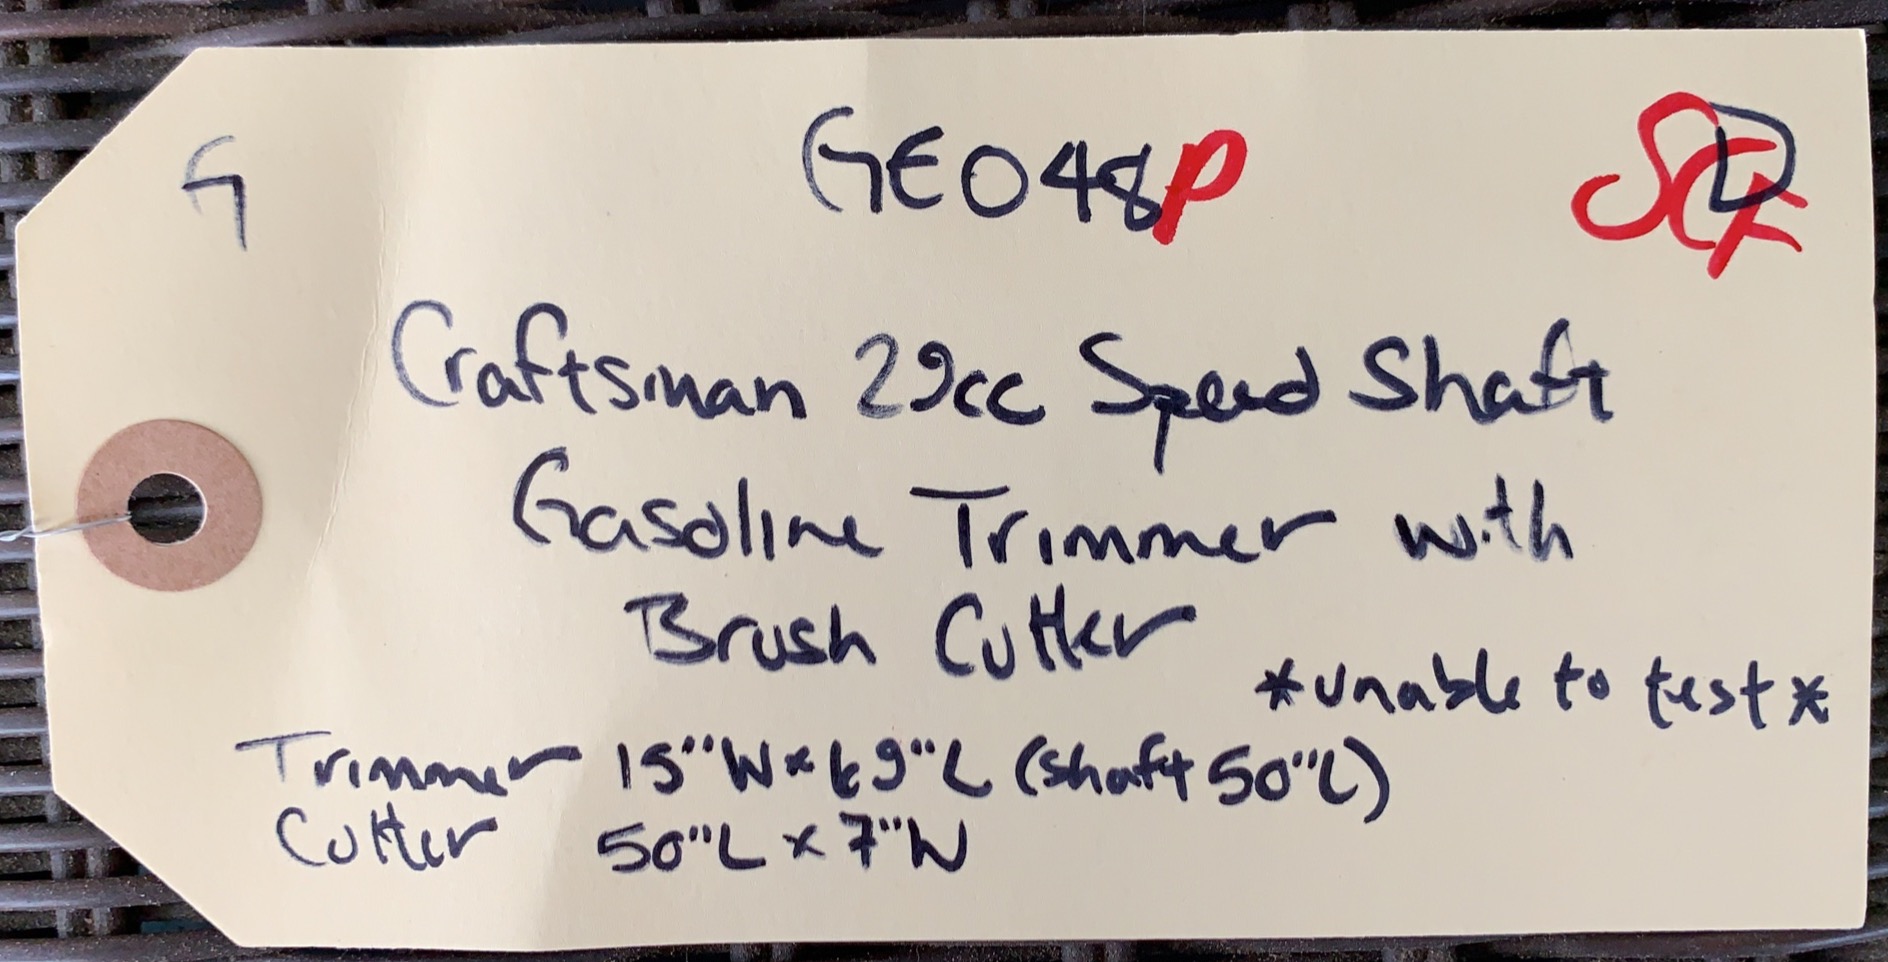 G GE048P SCF D
Craftsman 29cc Speed Shaft
Gasoline Trimmer with
Brush Cutter
*unable to test*
Trimmer 15"W x 69"L (shaft 50"L)
Cutter 50"L x 7"W